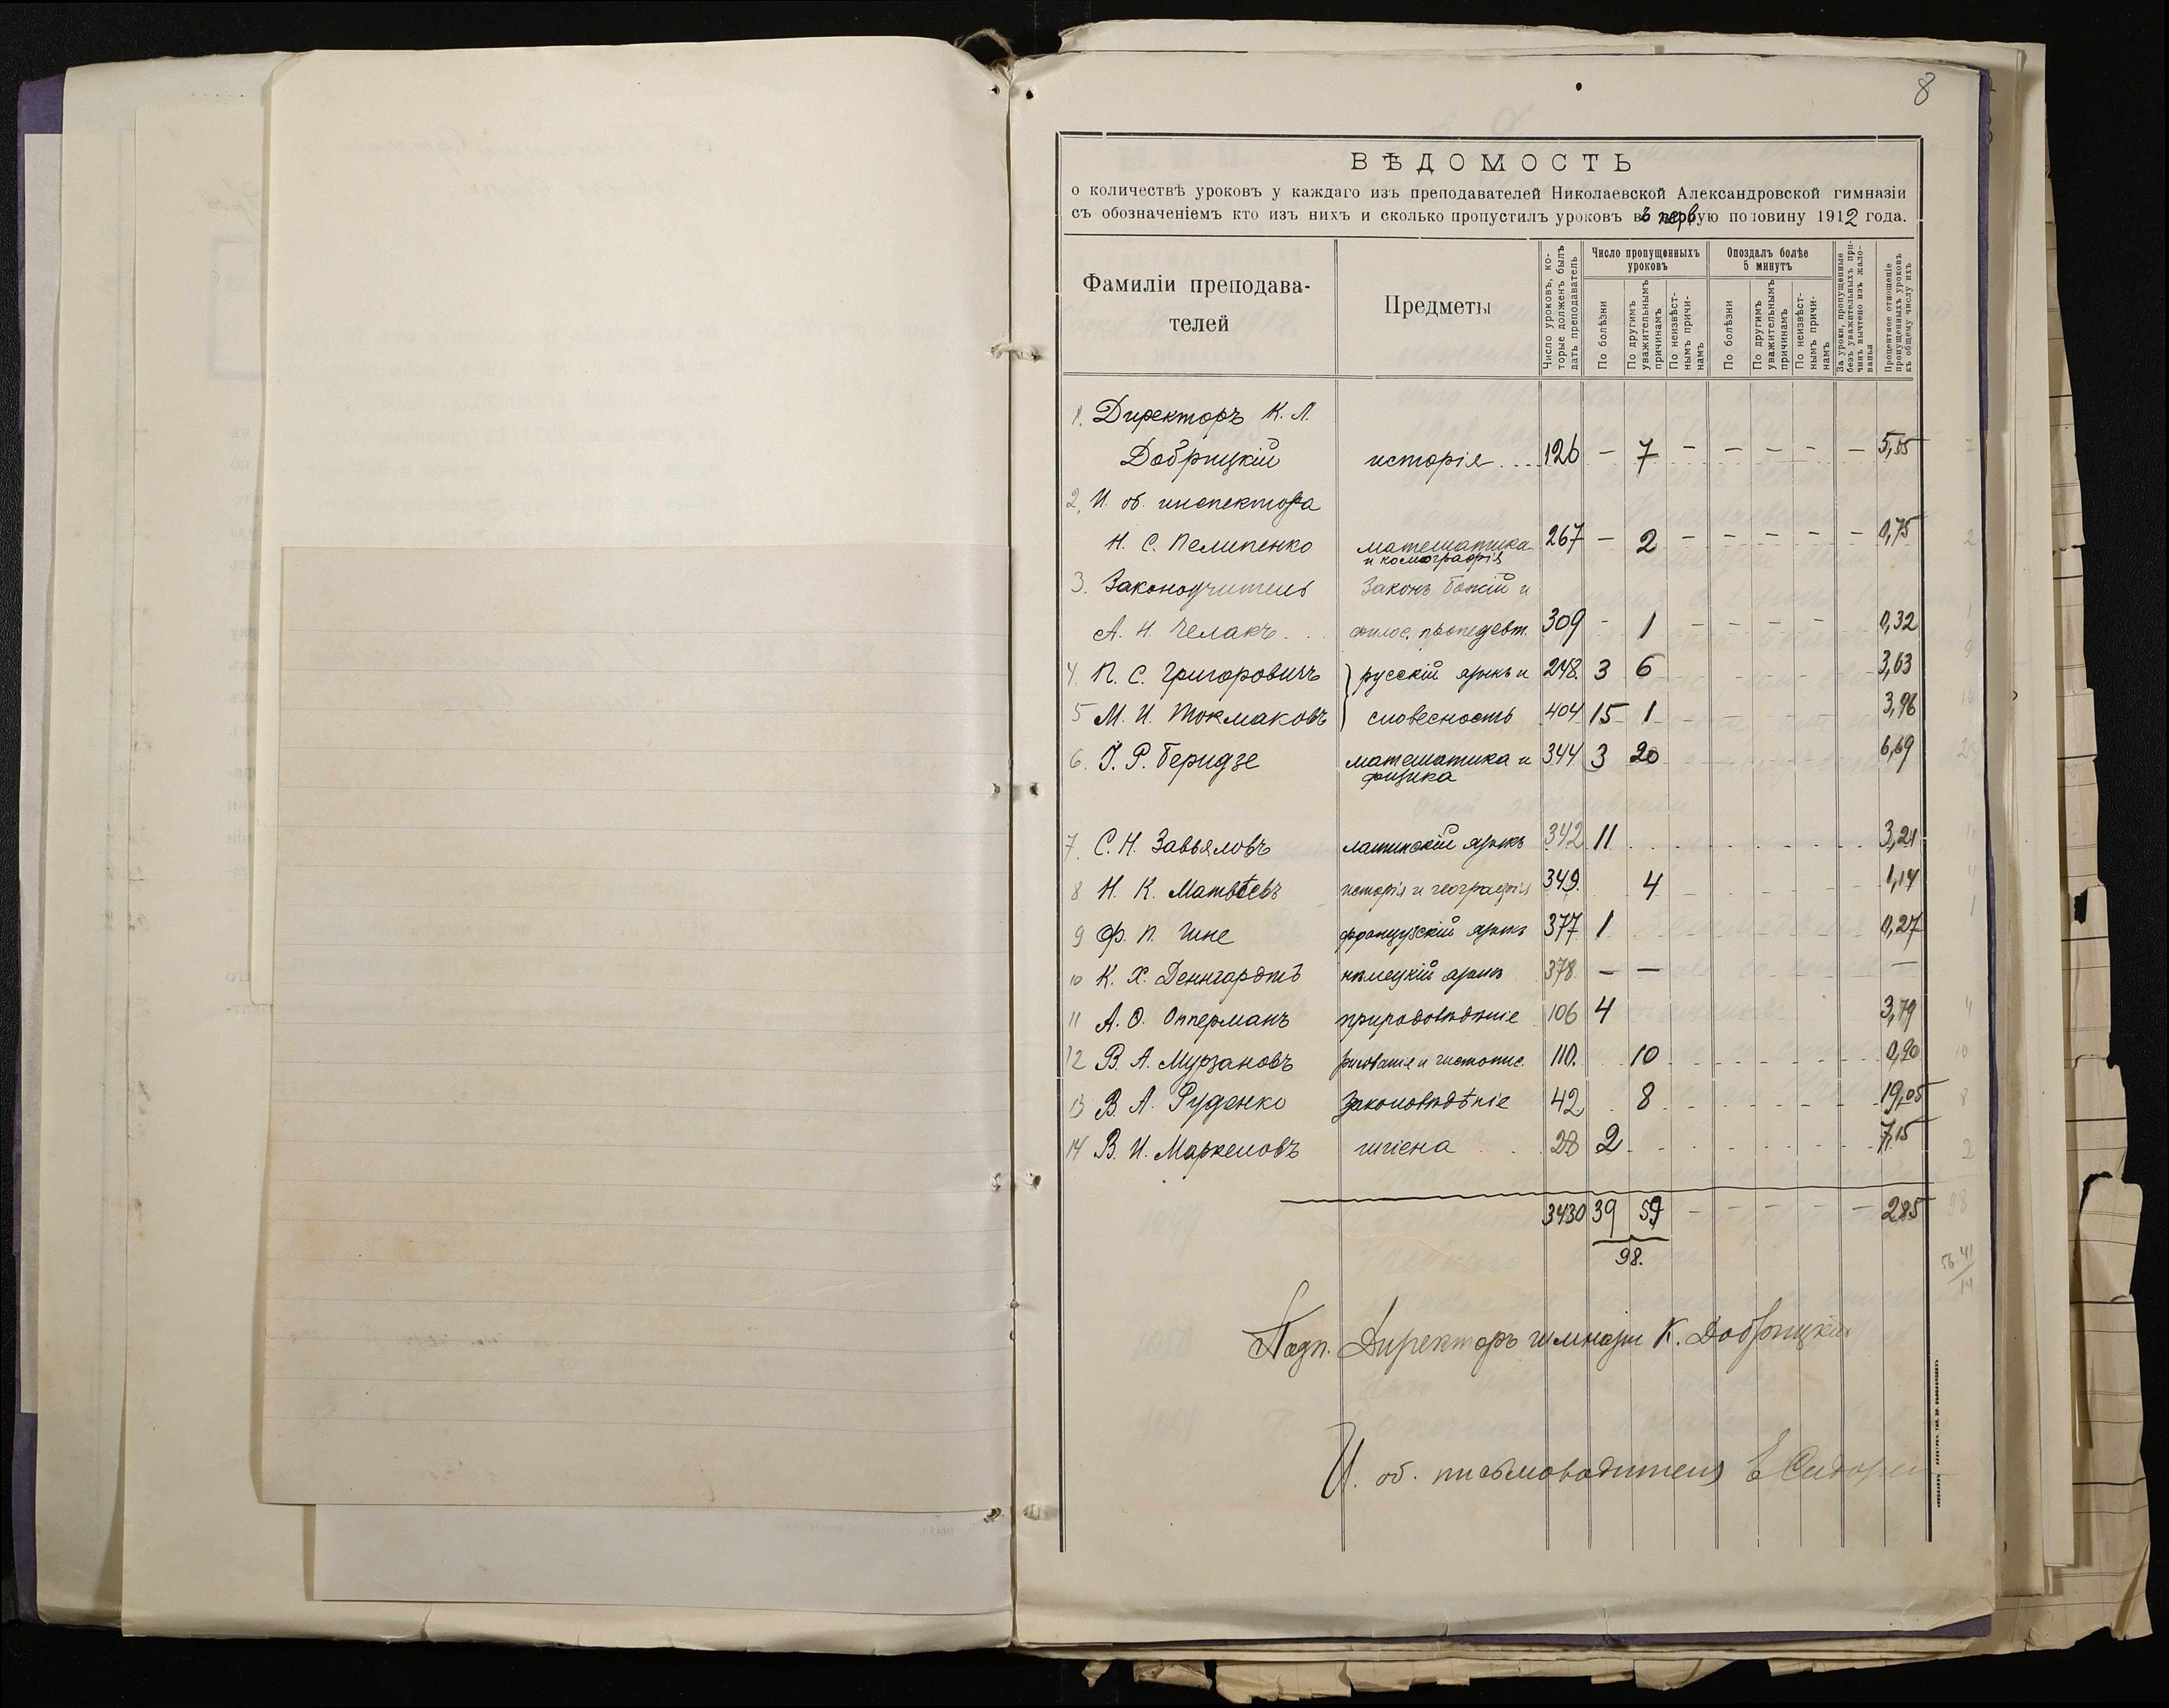 8
ВѢДОМОСТЬ
о количествѣ уроковъ у каждаго изъ преподавателей Николаевской Александровской гимназіи
съ обозначеніемъ кто изъ нихъ и сколько пропустилъ уроковъ въ первую половину 1912 года.
Фамиліи преподава-
телей
Предметы
Число уроковъ, ко-
торые долженъ былъ
дать преподаватель
Число пропущенныхъ
уроковъ
По болѣзни
По другимъ
уважительнымъ
причинамъ
По неизвѣст-
нымъ причи-
намъ
Опоздалъ болѣе
5 минутъ
По болѣзни
По другимъ
уважительнымъ
причинамъ
По неизвѣст-
нымъ причи-
намъ
За уроки, пропущенные
безъ уважительныхъ при-
чинъ вычтено изъ жало-
ванья
Процентное отношеніе
пропущенныхъ уроковъ
къ общему числу ихъ
1. Директоръ К. Л.
Добрицкій исторія .... 126 — 7 — — — — — 5,55
2. И. об. инспектора
Н. С. Пелипенко математика 267 — 2 — — — — — 0,75
и космографія
3. Законоучитель Законъ Божій и
А. Н. Челакъ . . филос. пропедевт. 309 - 1 — — — — 0,32
4. П. С. Григоровичъ русскій языкъ и 248. 3 6 3,63
5 М. И. Токмаковъ словесность 404 15 1 3,96
6. І. Р. Беридзе математика и 344 3 20 6,69
физика
7. С. Н. Завьяловъ латинскій языкъ 342 11 3,21
8 Н. К. Матвѣевъ исторія и географія 349. 4 1,14
9 Ф. П. Гине французскій языкъ 377 1 0,27
10 К. Х. Деннгардтъ нѣмецкій языкъ 378 — — —
11 А. О. Опперманъ природовѣдѣніе 106 4 3,79
12 В. А. Мурзановъ рисованіе и чистопис. 110. 10 0,90
13 В. А. Руденко Законовѣдѣніе 42. 8 19,05
14 В. И. Маркеловъ гигіена 28 2 7,15
3430 39 59 — — — — — 2,85
98.
Подп. Директоръ гимназіи К. Добрицкій
И. об. письмоводителя